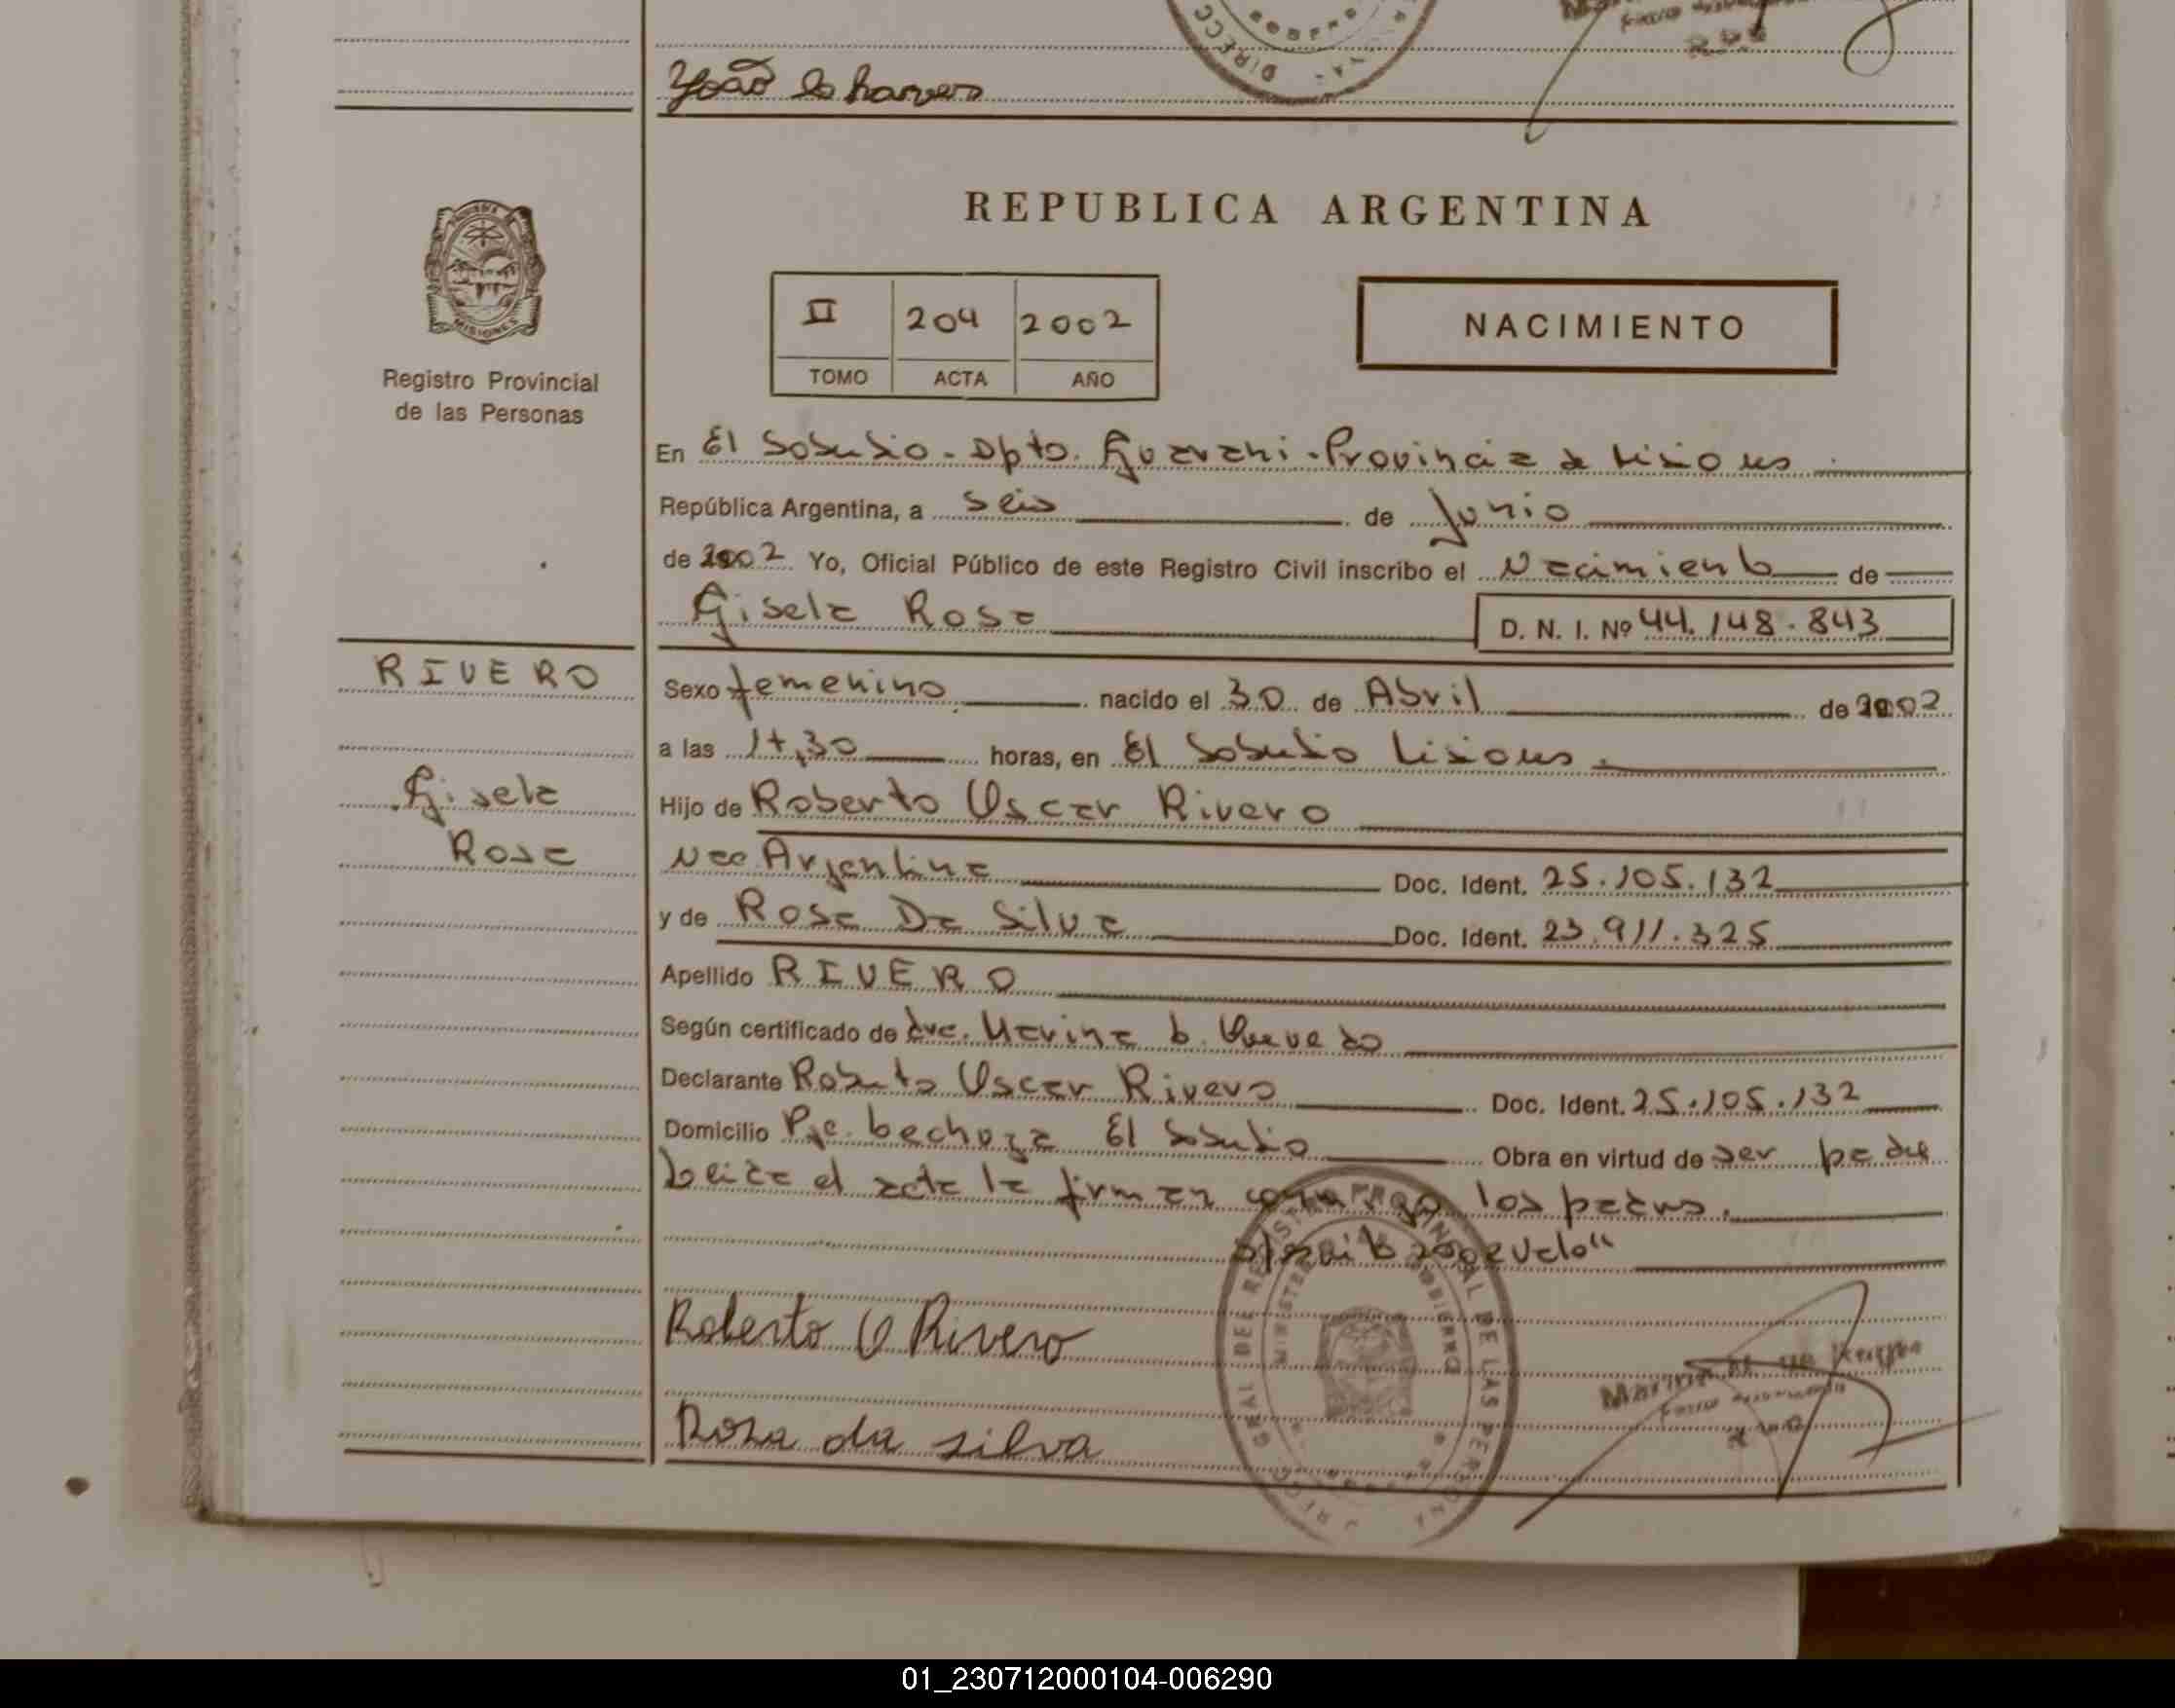 João Chaves
DIRECC
REPUBLICA ARGENTINA
MISIONES
II 204 2002
TOMO ACTA AÑO
NACIMIENTO
Registro Provincial
de las Personas
En El Soberbio - Dpto. Guarani - Provincia de Misiones
República Argentina, a seis de Junio
de 2002 Yo, Oficial Público de este Registro Civil inscribo el Nacimiento de
Gisela Rosa
D. N. I. Nº 44.148.843
RIVERO
Gisela
Rosa
Sexo femenino nacido el 30 de Abril de 2002
a las 17,30 horas, en El Soberbio Misiones.
Hijo de Roberto Oscar Rivero
Nac Argentina Doc. Ident. 25.105.132
y de Rosa Da Silva Doc. Ident. 23.911.325
Apellido RIVERO
Según certificado de Marina
Declarante Roberto Oscar Rivero Doc. Ident. 25.105.132
Domicilio El Soberbio Obra en virtud de ser padre
Leida el acta la firman conmigo los padres.
Roberto O Rivero
Rosa da silva
REGISTRO PROVINCIAL DE LAS PERSONAS
MINISTERIO GOBIERNO
01_230712000104-006290